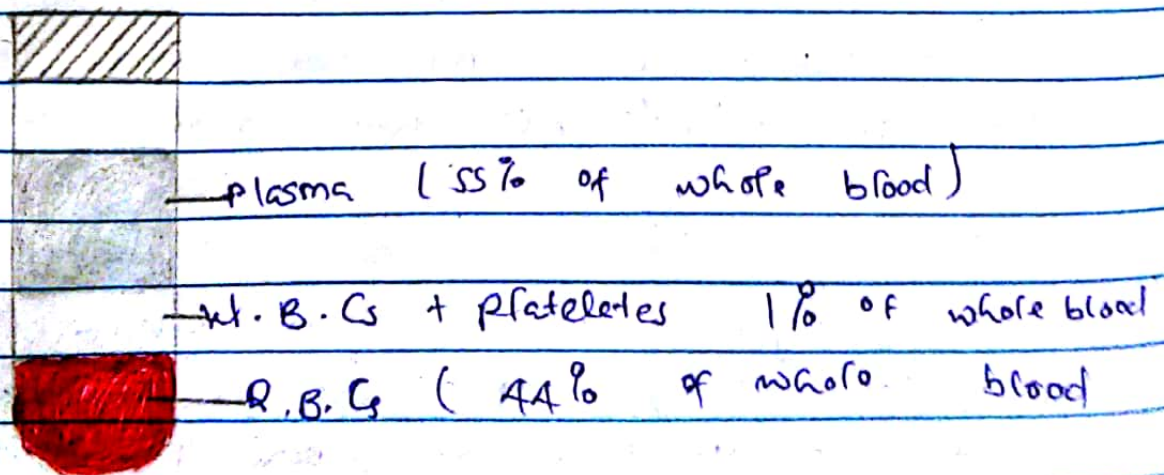 plasma (55% of whole blood)
W.B.Cs + Platelates 1% of whole blood
R.B.Cs ( 44% of whole blood